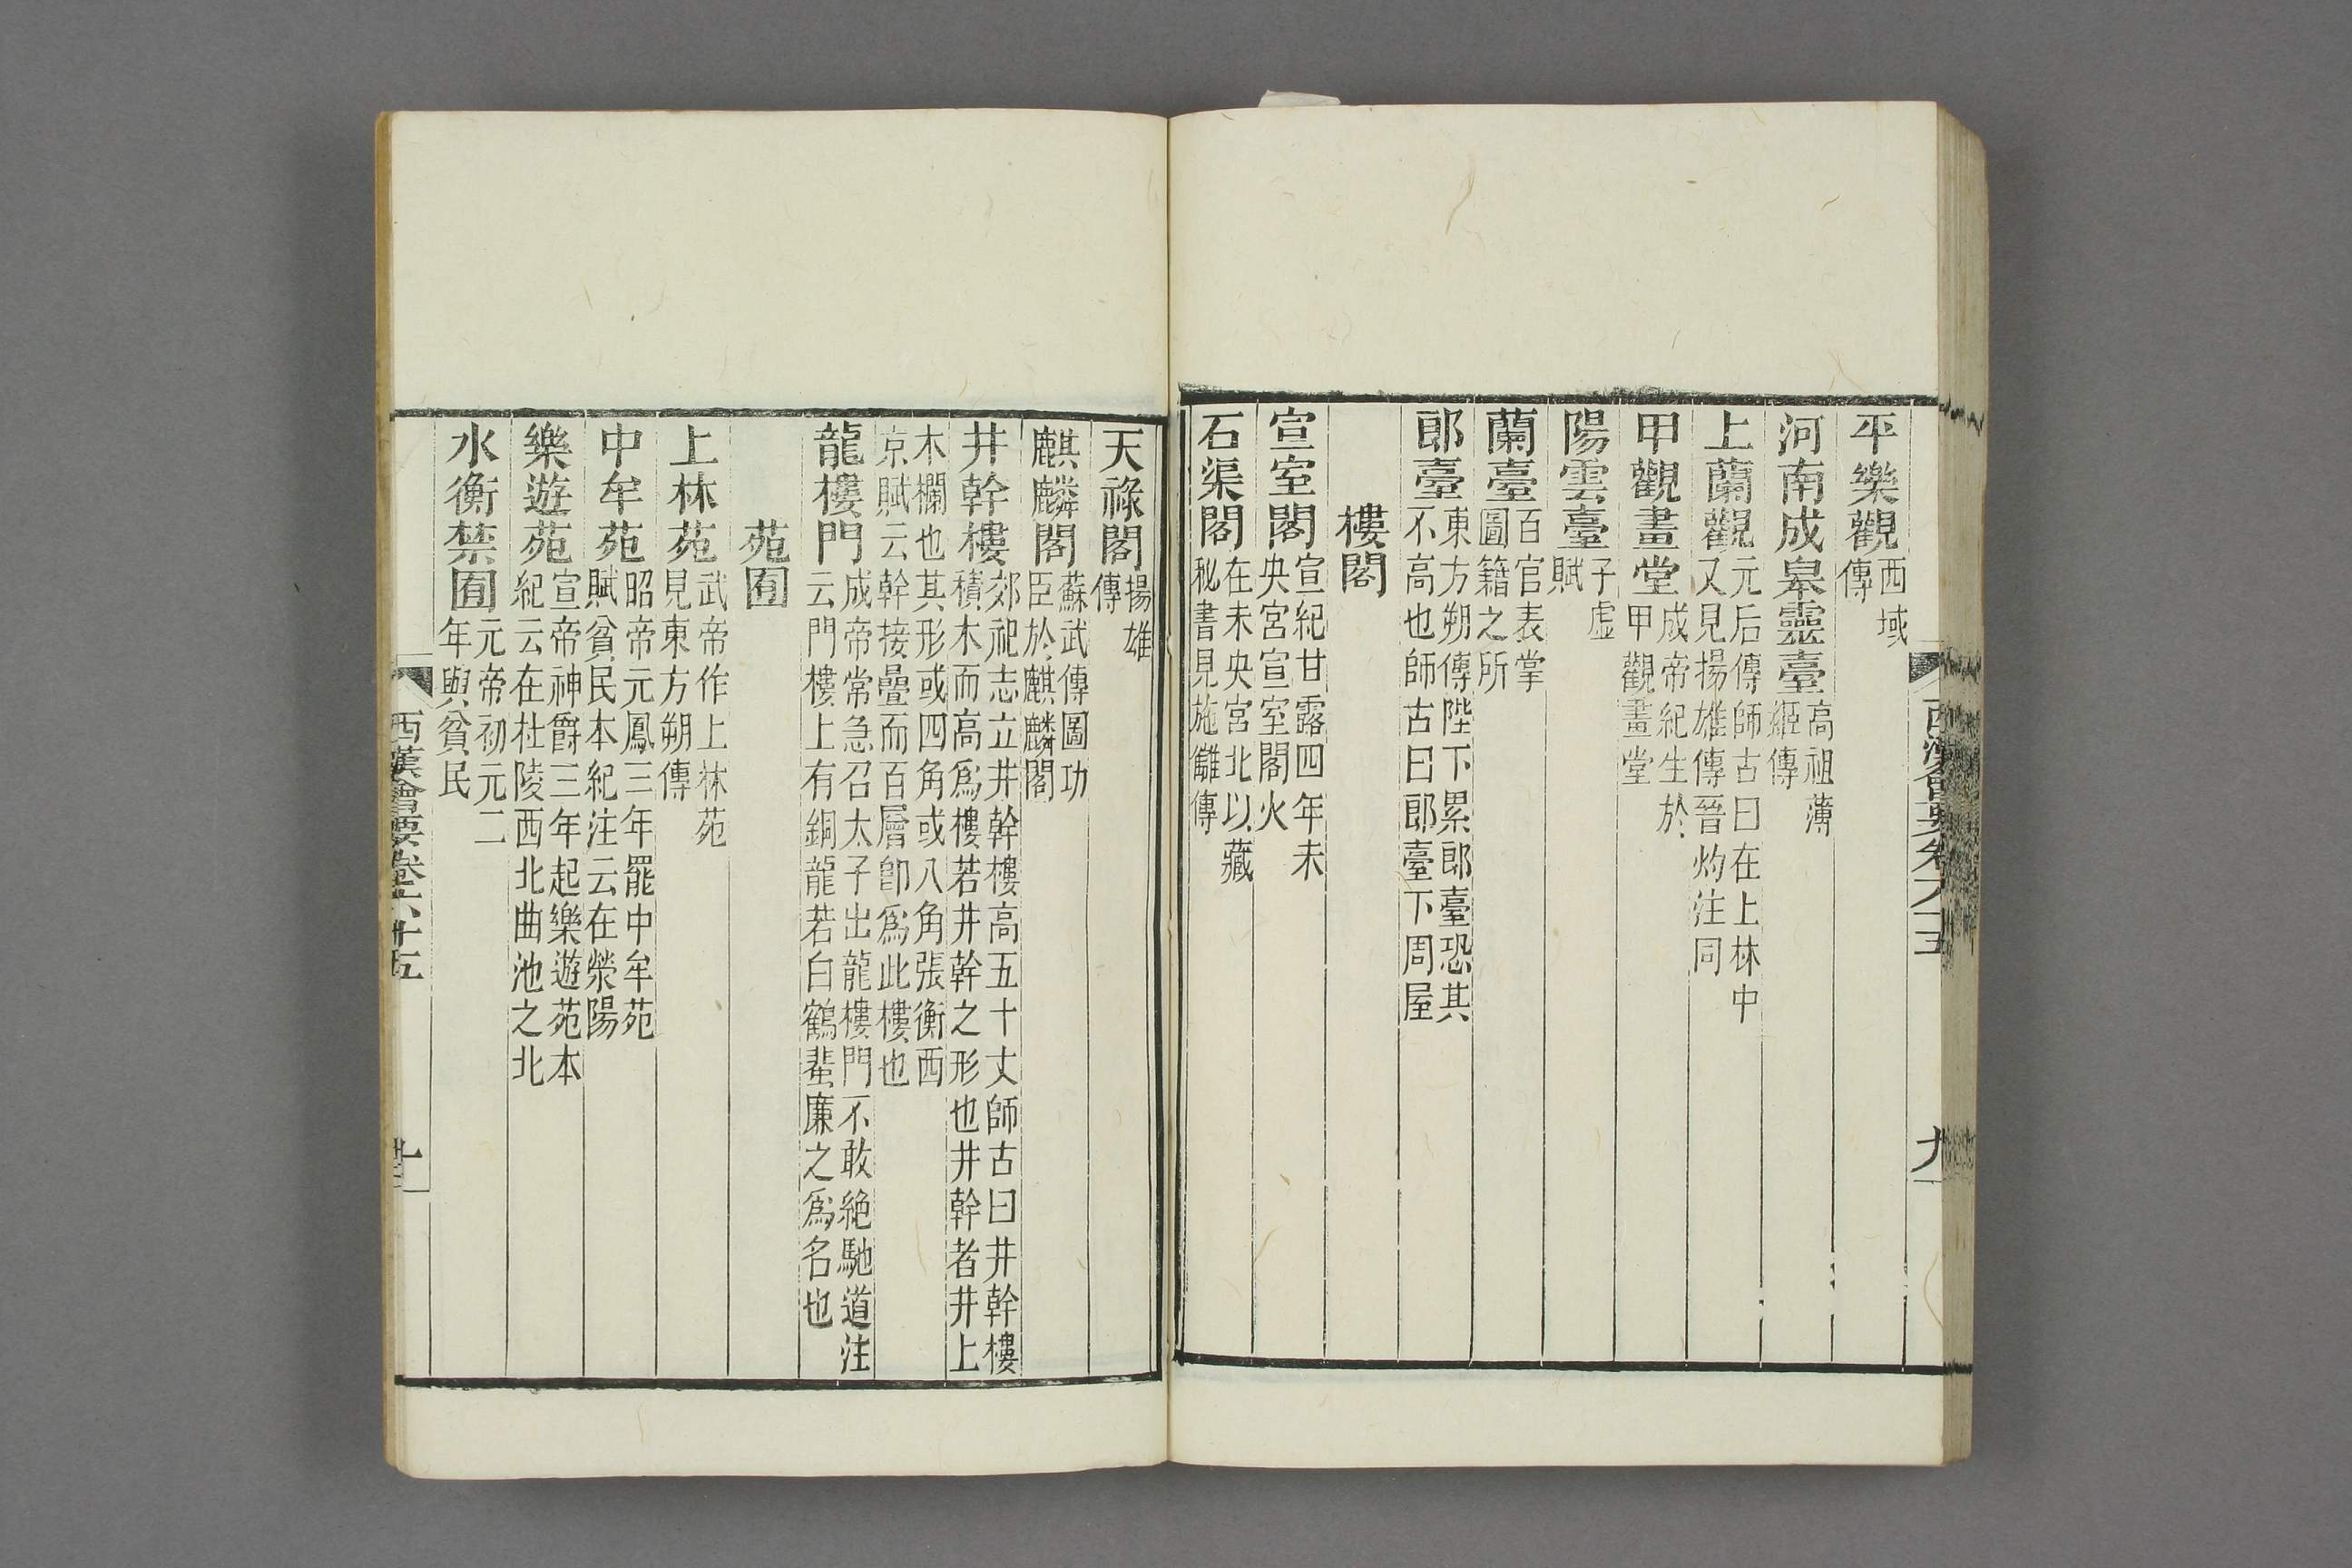 平樂觀西域傳
河南成皋靈臺高祖薄姬傳
上蘭觀元后傳師古曰在上林中又見揚雄傳晉灼注同
甲觀畫堂成帝紀生於甲觀畫堂
陽雲臺子虛賦
蘭臺百官表掌圖籍之所
郎臺東方朔傳陛下累郎臺恐其不高也師古曰郎臺下周屋
樓閣
宣室閣宣紀甘露四年未央宮宣室閣火
石渠閣在未央宮北以藏秘書見施讎傳
天祿閣揚雄傳
麒麟閣蘇武傳圖功臣於麒麟閣
井幹樓郊祀志立井幹樓高五十丈師古曰井幹樓積木而高爲樓若井幹之形也井幹者井上
木欄也其形或四角或八角張衡西京賦云幹接疊而百層卽爲此樓也
龍樓門成帝常急召太子出龍樓門不敢絕馳道注云門樓上有銅龍若白鶴蜚廉之爲名也
苑囿
上林苑武帝作上林苑見東方朔傳
中牟苑昭帝元鳳三年罷中牟苑賦貧民本紀注云在滎陽
樂遊苑宣帝神爵三年起樂遊苑本紀云在杜陵西北曲池之北
水衡禁囿元帝初元二年與貧民
西漢會要卷六十五